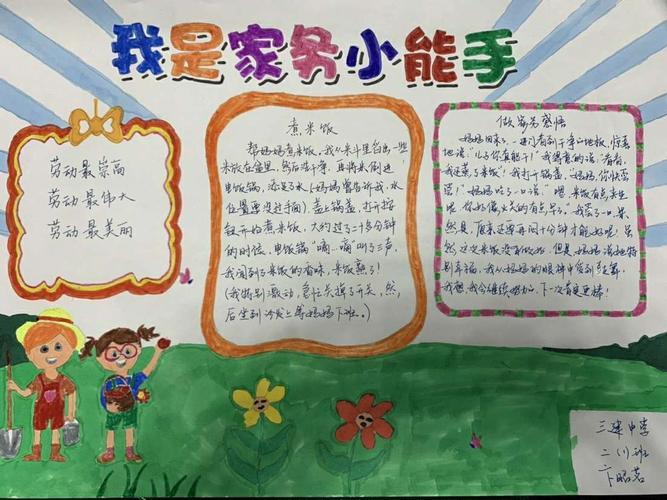 我是家务小能手
劳动最崇高
劳动最伟大
劳动最美丽
煮米饭
帮妈妈煮米饭,我从米斗里舀出一些
米放在盆里,然后洗干净,再将米倒进
电饭锅,添足了水(妈妈警告所我,水
位置要没过手面),盖上锅盖,打开按
钮开始煮米饭,大约过了二十多分钟
的时候,电饭锅“嘀…嘀”叫了三声,
我闻到了米饭的香味,米饭熟了!
(我特别激动,急忙关掉了开关,然
后坐到沙发上等妈妈下班。)
做家务感悟
妈妈回来了,一进门看到干净的地板,惊喜
地说:“儿子你真能干!”我得意的说:“看看,
我还蒸了米饭”我打开锅盖,“妈妈,你快尝
尝!”妈妈吃了一口说:“嗯,米饭有点夹生
哦,你好像火关的有点早。”我尝了一口,果
然是,原来还要再闷十分钟才能好呢!虽
然这次米饭没有做好,但是,妈妈说她特
别幸福,我从妈妈的眼神中受到鼓舞,
我想,我会继续努力,下一次肯定更棒!
三建中学
二(1)班
卞昭茗